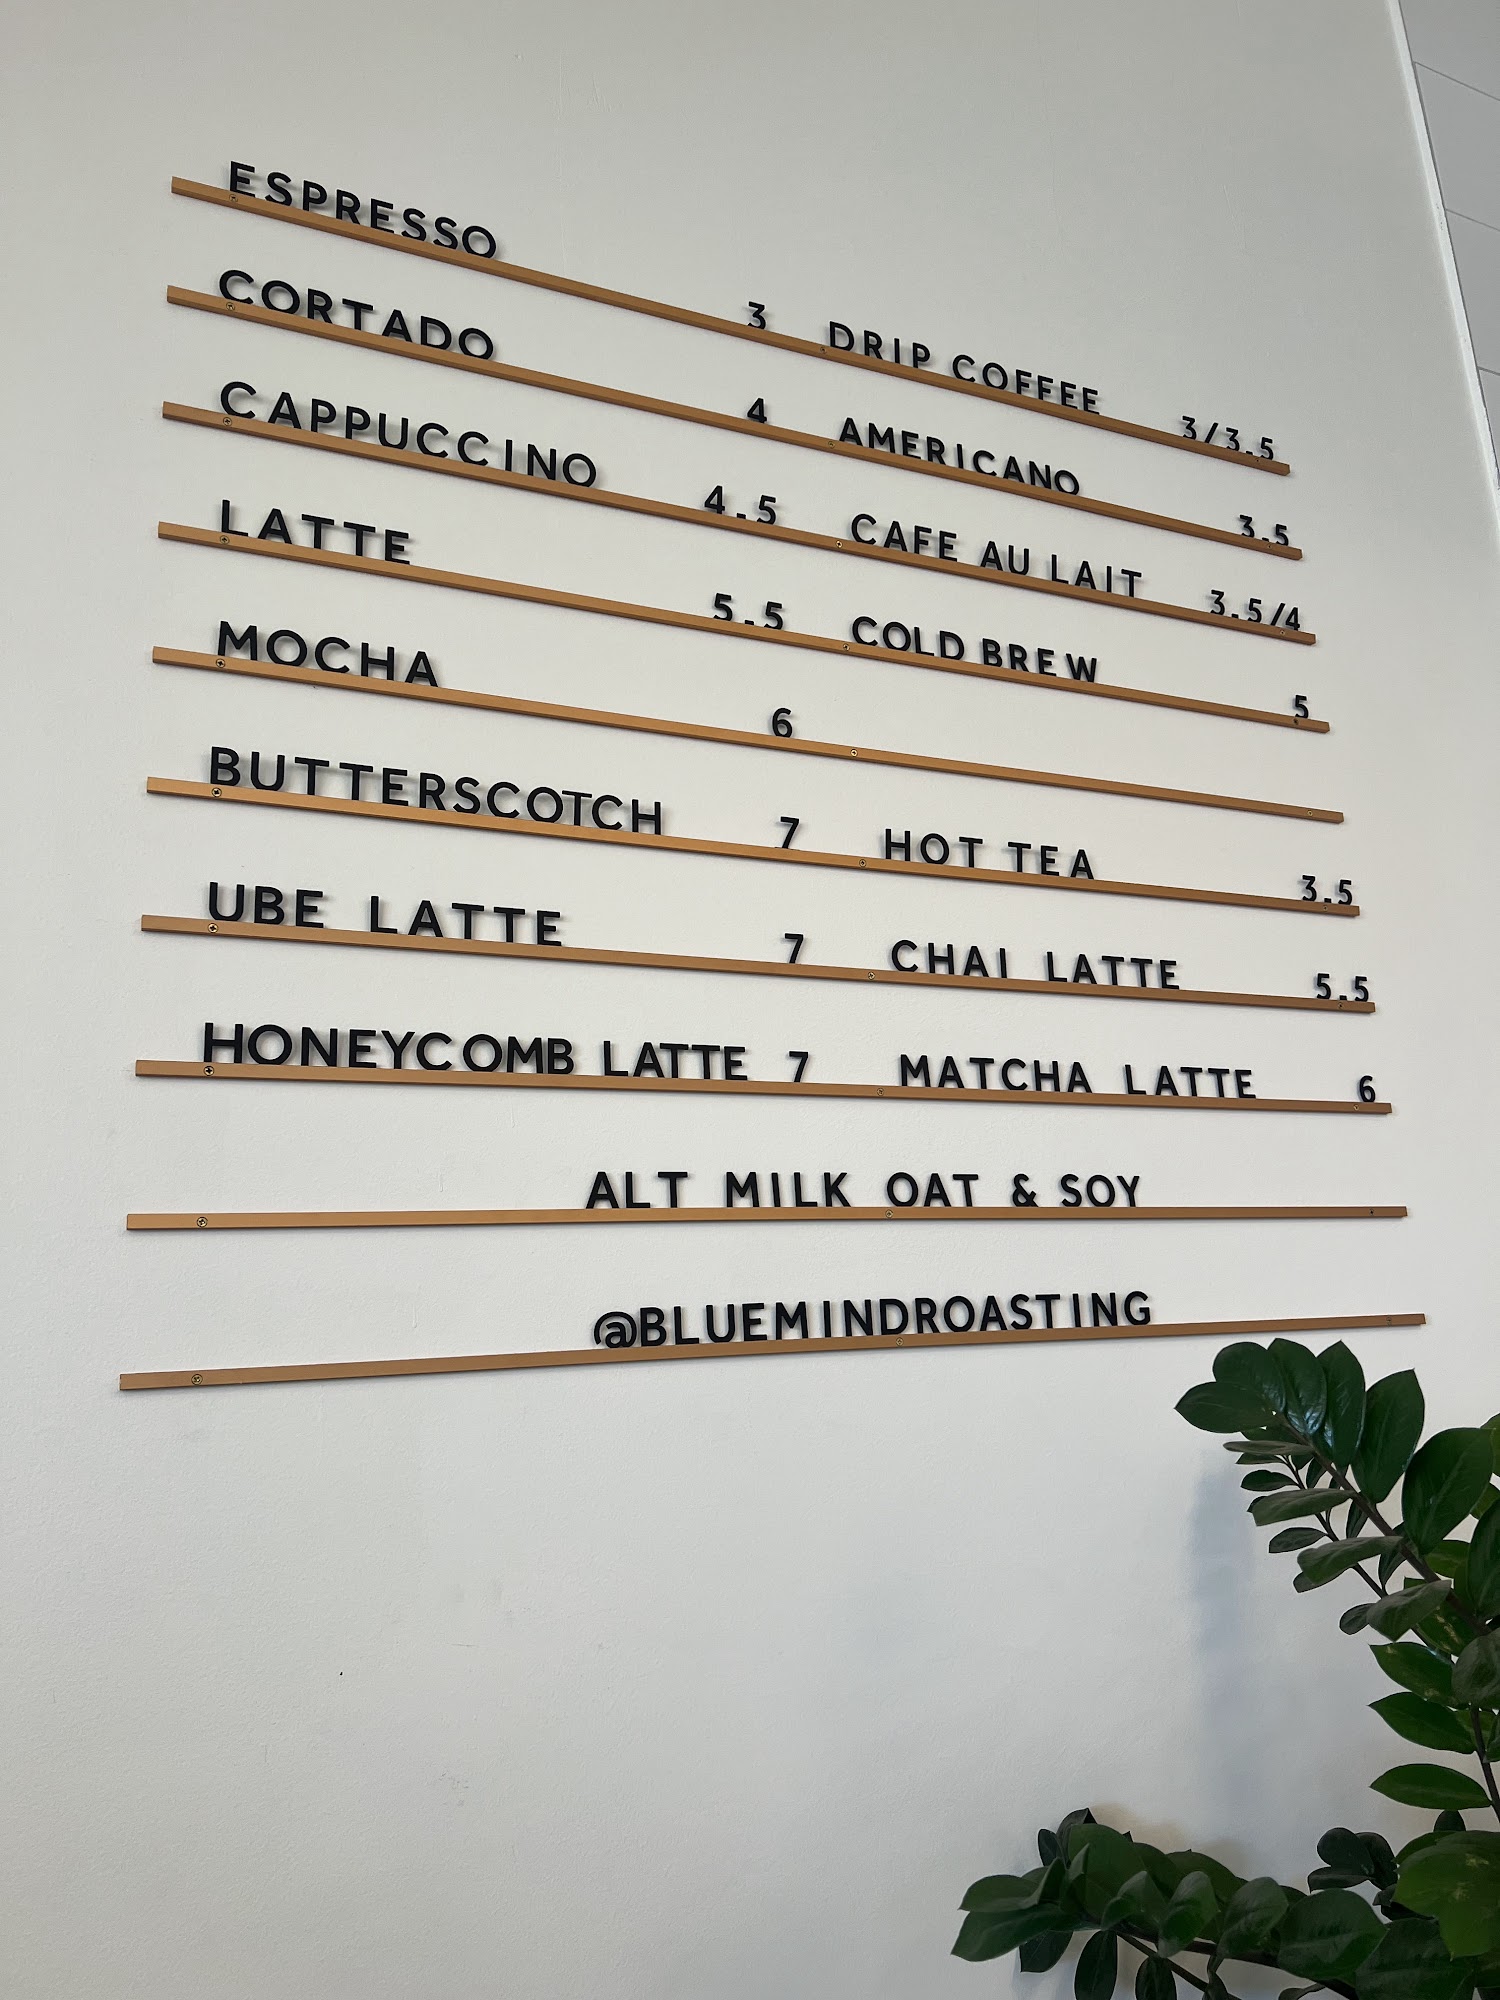 ESPRESSO 3 DRIP COFFEE 3/3.5
CORTADO 4 AMERICANO 3.5
CAPPUCCINO 4.5 CAFE AU LAIT 3.5/4
LATTE 5.5 COLD BREW 5
MOCHA 6
BUTTERSCOTCH 7 HOT TEA 3.5
UBE LATTE 7 CHAI LATTE 5.5
HONEYCOMB LATTE 7 MATCHA LATTE 6
ALT MILK OAT & SOY
@BLUEMINDROASTING